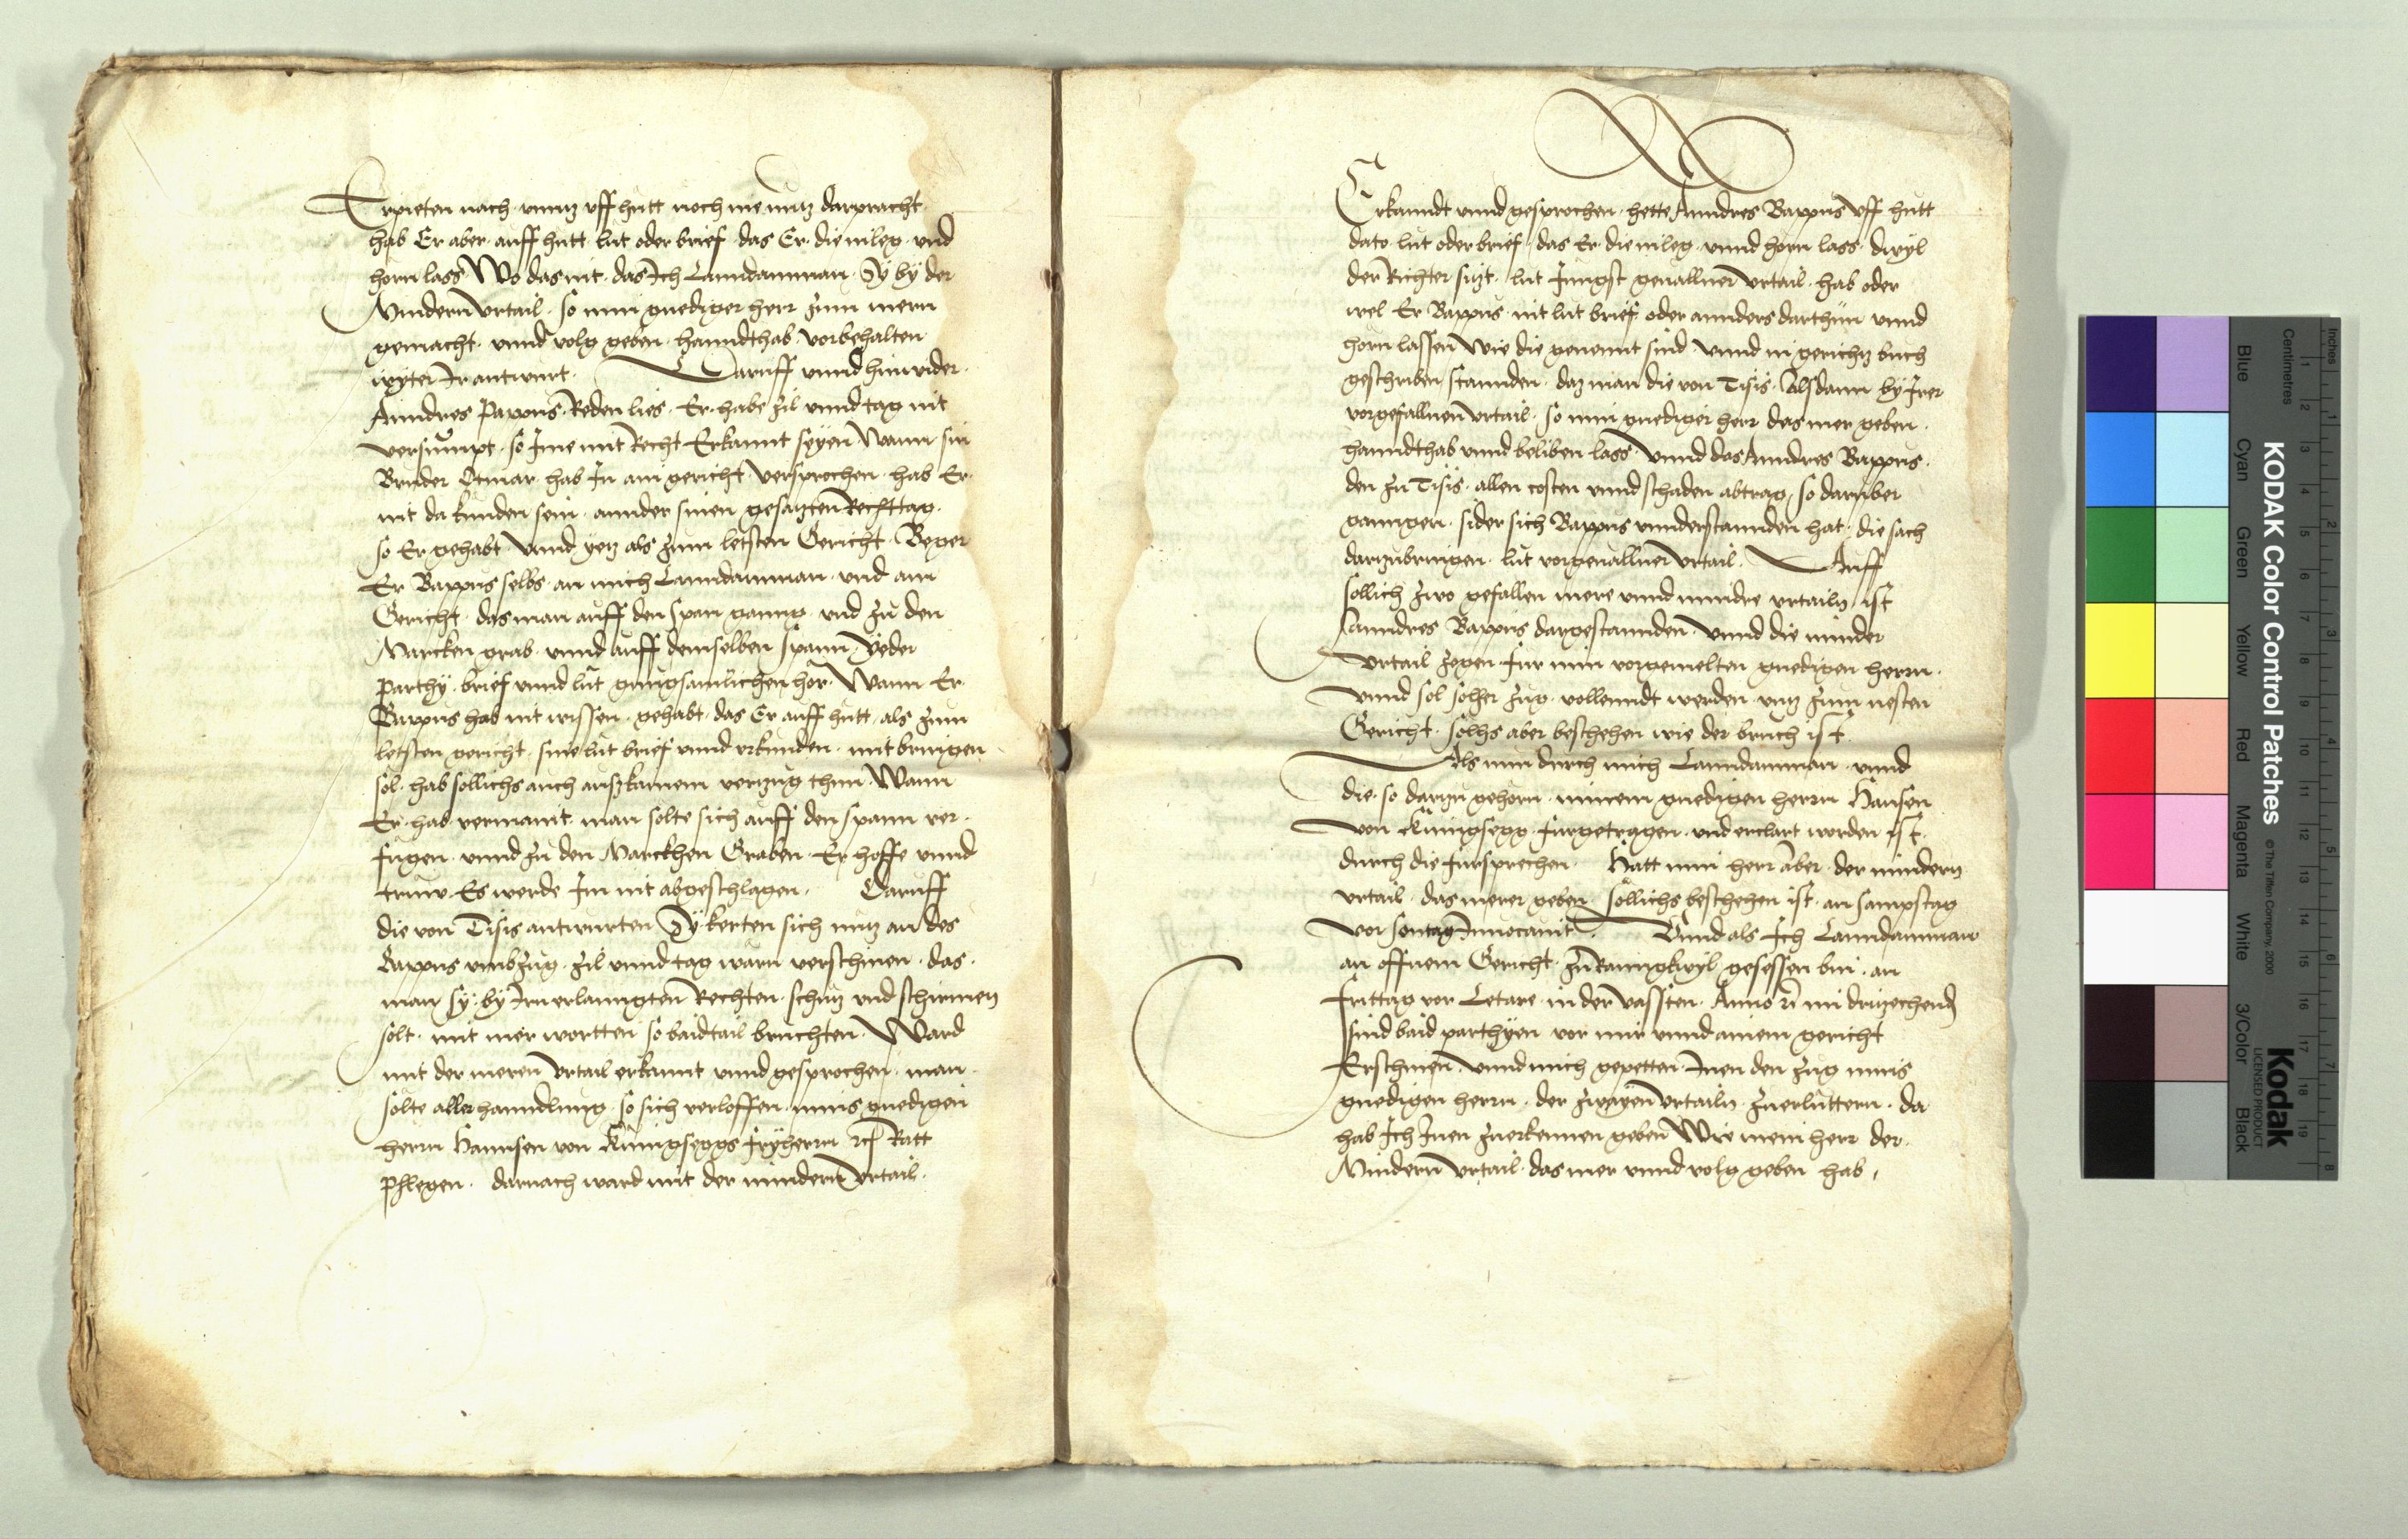 Erpieten nach unntz uff hutt noch nie nutz darpracht
hab Er aber auff hutt lut oder brief das Er die inleg und
horn lass Wo das nit das Ich Lanndamman Sy by der
Mindern Urtail so min gnediger herr zum mern
gemacht unnd volg geben hanndthab vorbehalten
wyter Ir antwurt Daruff unnd hinwider
Anndres Pappus Reden lies Er habe zil unnd tag nit
versumpt so Ime mit Recht Erkannt syen Wann sin
Bruder Otmar hab In am gericht versprochen hab Er
nit da kunden sein annder sinen gesatzten Rechttag
so Er gehabt Unnd yetz als zum letsten Gericht Beger
Er Bappus selbs an mich Lanndamman und am
Gericht das man auff den span ganng und zu den
Marcken grab unnd auff demselben spann Yeder
parthy brief unnd lut gnugsamlichen hor Wann Er
Bappus hab nit wissen gehabt das Er auff hutt als zum
letsten gericht sine lut brief unnd urkunden mit bringen
sol hab sollichs auch ausz kainem verzug thun Wann
Er hab vermaint man solte sich auff den spann ver
fugen unnd zu den Marckhen Graben Er hoffe unnd
truw Es werde Im nit abgeschlagen Daruff
die von Tisis antwurten Sy kerten sich nutz an des
Bappus umbzug zil unnd tag warn verschinen das
man sy by Irn erlanngten Rechten schutz und schirmen
solt mit mer wortten so baidtail bruchten Ward
mit der meren Urtail erkannt unnd gesprochen man
solte aller hanndlung so sich verloffen mins gnedigen
herrn Hannsen von Kungseggs fryherrn etc Ratt
Phlegen darnach ward mit der mindern Urtail
Erkanndt unnd gesprochen hette Anndres Bappus uff hutt
dato lut oder brief das Er die inleg unnd horn lass dwyl
der Richter sitzt lut Jungst geuallner Urtail hab oder
wel Er Bappus nit lut brief oder annders darthun unnd
horn lassen Wie die genennt sind Unnd in gerichtz buch
geschriben stannden daz man die von Tisis Alsdann by Irer
vorgefallnen Urtail so min gnediger herr das mer geben
hanndthab unnd beliben lass Unnd das Anndres Bappus
den zu Tisis allen costen unnd schaden abtrag so daruber
ganngen sider sich Bappus unnderstannden hat die sach
darzubringen lut vorgeuallner Urtail Auff
sollich zwo gefallen mere unnd mindre urtailn ist
Anndres Bappus dargestannden Unnd die minder
Urtail zogen fur min vorgemelten gnedigen herrn
Unnd sol solher zug vollenndt werden untz zum nesten
Gericht solhs aber beschehen wie der bruch ist
Als nun durch mich Lanndamman unnd
die so darzu gehorn minem gnedigen herrn Hansen
von Kungsegg furgetragen und erclart worden ist
durch die fursprechen Hatt min herr aber der mindern
urtail das merer geben sollichs beschehen ist an sampstag
vor sontag Inuocauit Unnd als Ich Lanndamman
an offnem Gericht zu Rannckwyl gesessen bin an
frittag vor Letare in der vassten Anno im drizechend
sind baid parthyen vor mir unnd ainem gericht
Erschinen unnd mich gepetten Inen den zug mins
gnedigen herrn der zwayen Urtailn zu erluttern da
hab Ich Inen zuerkennen geben Wie mein herr der
Mindern Urtail das mer unnd volg geben hab
KODAK Color Control Patches
© The Tiffen Company, 2000
Kodak
LICENSED PRODUCT
Blue Cyan Green Yellow Red Magenta White 3/Color Black
Inches
Centimetres
1 2 3 4 5 6 7 8 9 10 11 12 13 14 15 16 17 18 19
1 2 3 4 5 6 7 8